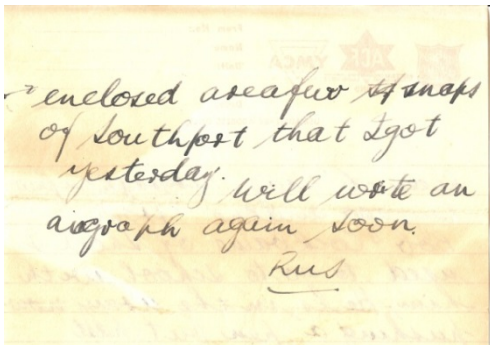 enclosed are a few of snaps
of Southport that I got
yesterday.
Will write an
airgraph again soon.
Rus